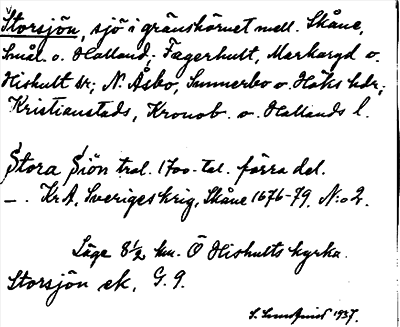 Storsjön, sjö i gränshörnet mell. Skåne,
Smål. o. Halland; Fagerhult, Markaryd o.
Hishult sr; N. Åsbo, Sunnerbo o. Höks hdr;
Kristianstads, Kronob. o. Hallands l.
Stora Siön trol. 1700-tal. förra del.
—. KrA, Sveriges krig, Skåne 1676-79. N:o 2.
Läge 8½ km. Ö Hishults kyrka.
Storsjön ek, G. 9.
S. 1937.